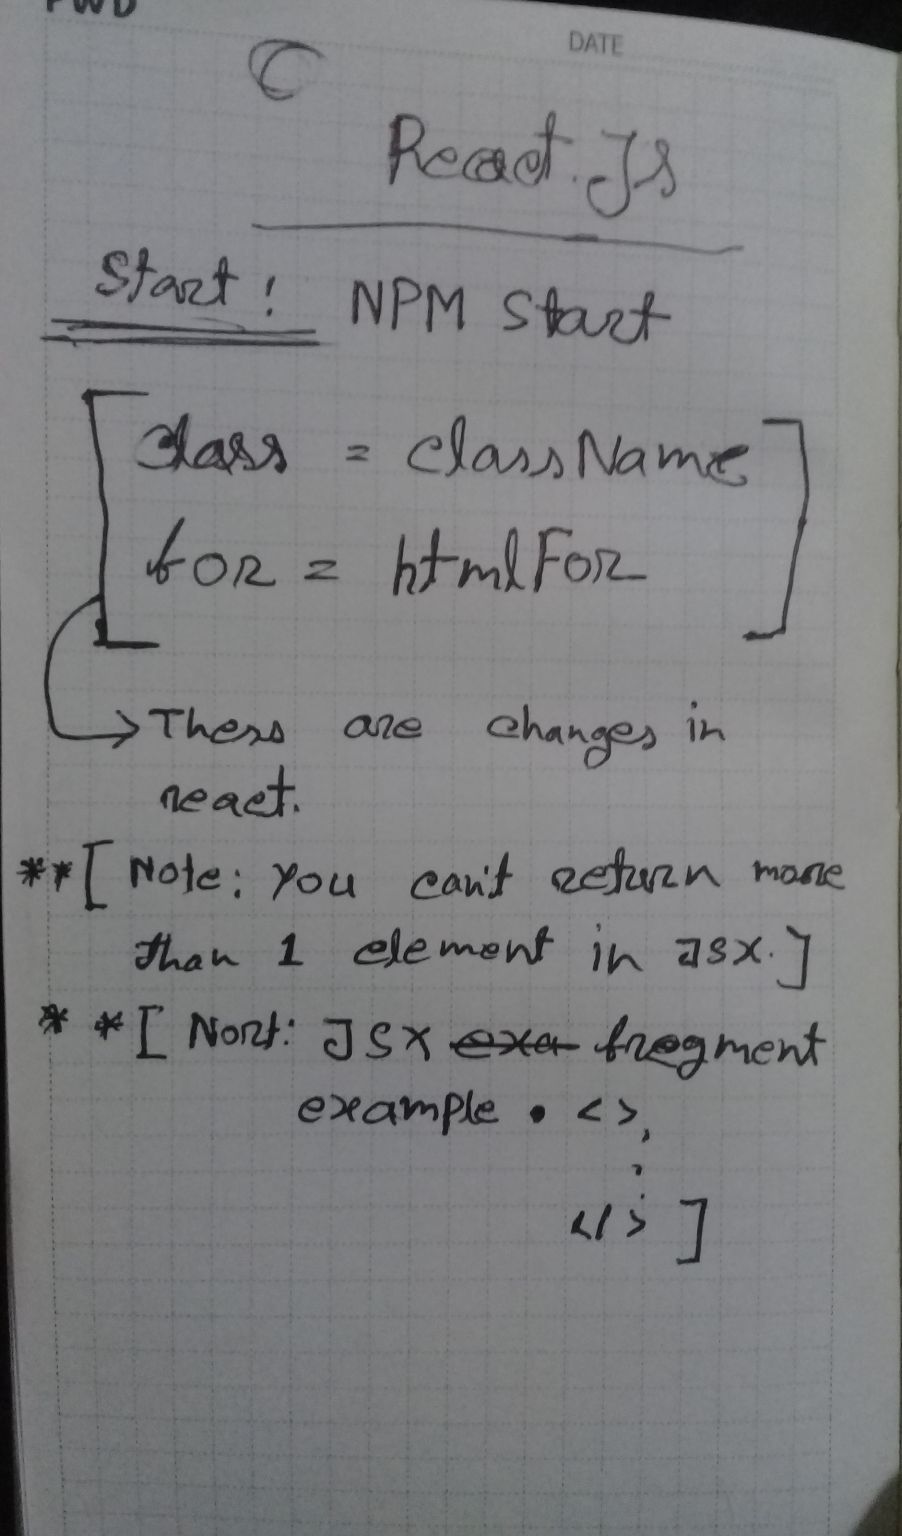 DATE
React.Js
Start: NPM Start
class = className
for = htmlFor
Thess are changes in
react.
**[ Note: You can't return more
than 1 element in JSX.]
**[ Nort: JSX exa fregment
example • <>
</> ]